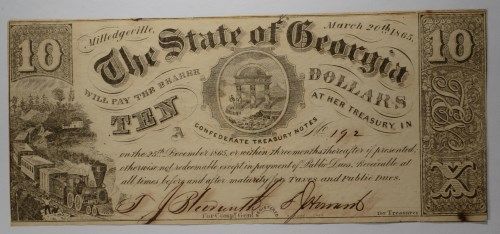 10 Milledgeville, March 20th, 1865, 10
The State of Georgia
WILL PAY THE BEARER
TEN DOLLARS
A AT HER TREASURY, IN
CONFEDERATE TREASURY NOTES No 192
on the 25th December 1865, or within three months thereafter if presented;
otherwise not redeemable except in payment of Public Dues. Receivable at
all times before and after maturity for Taxes and Public Dues.
For Comp! Gen!
for Treasurer
TEN
X